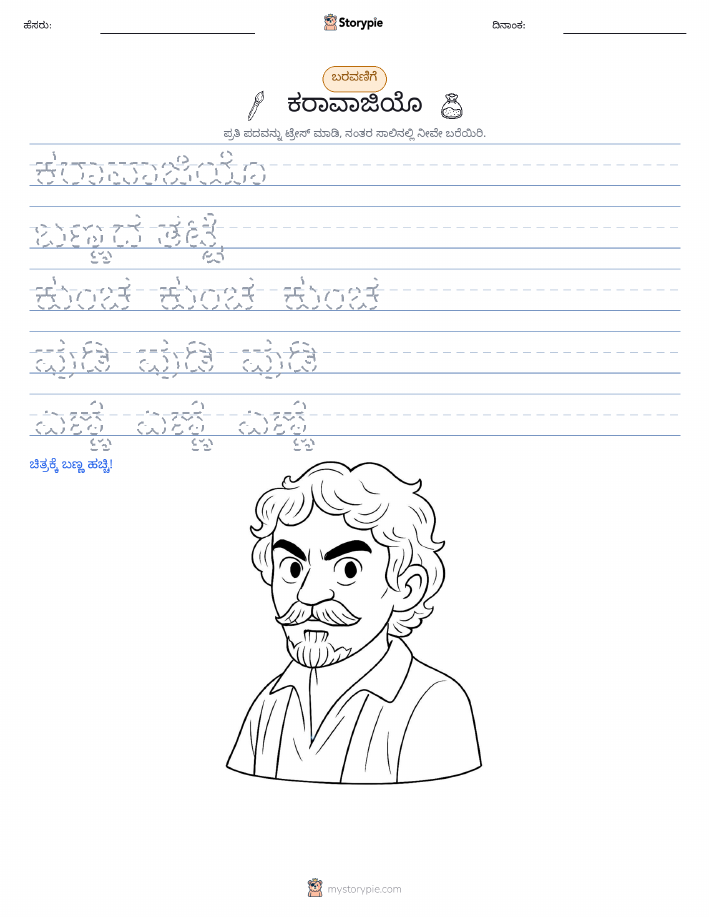 ಹೆಸರು: Storypie ದಿನಾಂಕ:
ಬರವಣಿಗೆ
ಕರಾವಾಜಿಯೊ
ಪ್ರತಿ ಪದವನ್ನು ಟ್ರೇಸ್ ಮಾಡಿ, ನಂತರ ಸಾಲಿನಲ್ಲಿ ನೀವೇ ಬರೆಯಿರಿ.
ಕರಾವಾಜಿಯೊ
ಬಣ್ಣದ ತಟ್ಟೆ
ಕುಂಚ ಕುಂಚ ಕುಂಚ
ಪುಡಿ ಪುಡಿ ಪುಡಿ
ಎಣ್ಣೆ ಎಣ್ಣೆ ಎಣ್ಣೆ
ಚಿತ್ರಕ್ಕೆ ಬಣ್ಣ ಹಚ್ಚಿ!
mystorypie.com